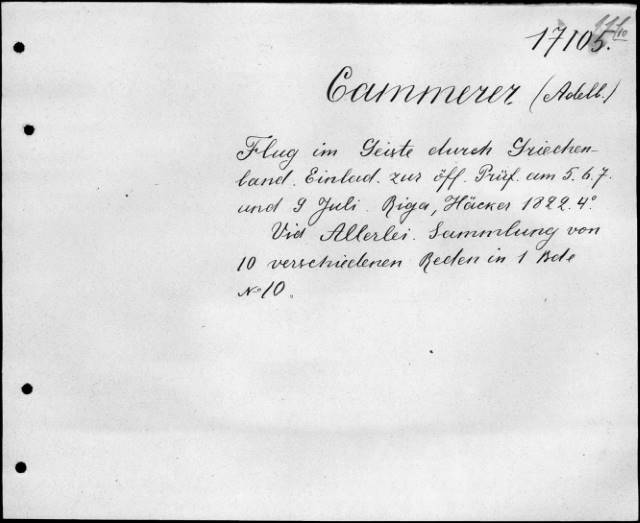 17105.
Cammerer (Adelb.)
Flug im Geiste durch Griechen-
land. Einlad. zur öff. Prüf. am 5. 6. 7.
und 9 Juli. Riga, Häcker 1822. 4°
Vid Allerlei. Sammlung von
10 verschiedenen Reden in 1 Bde
No 10.